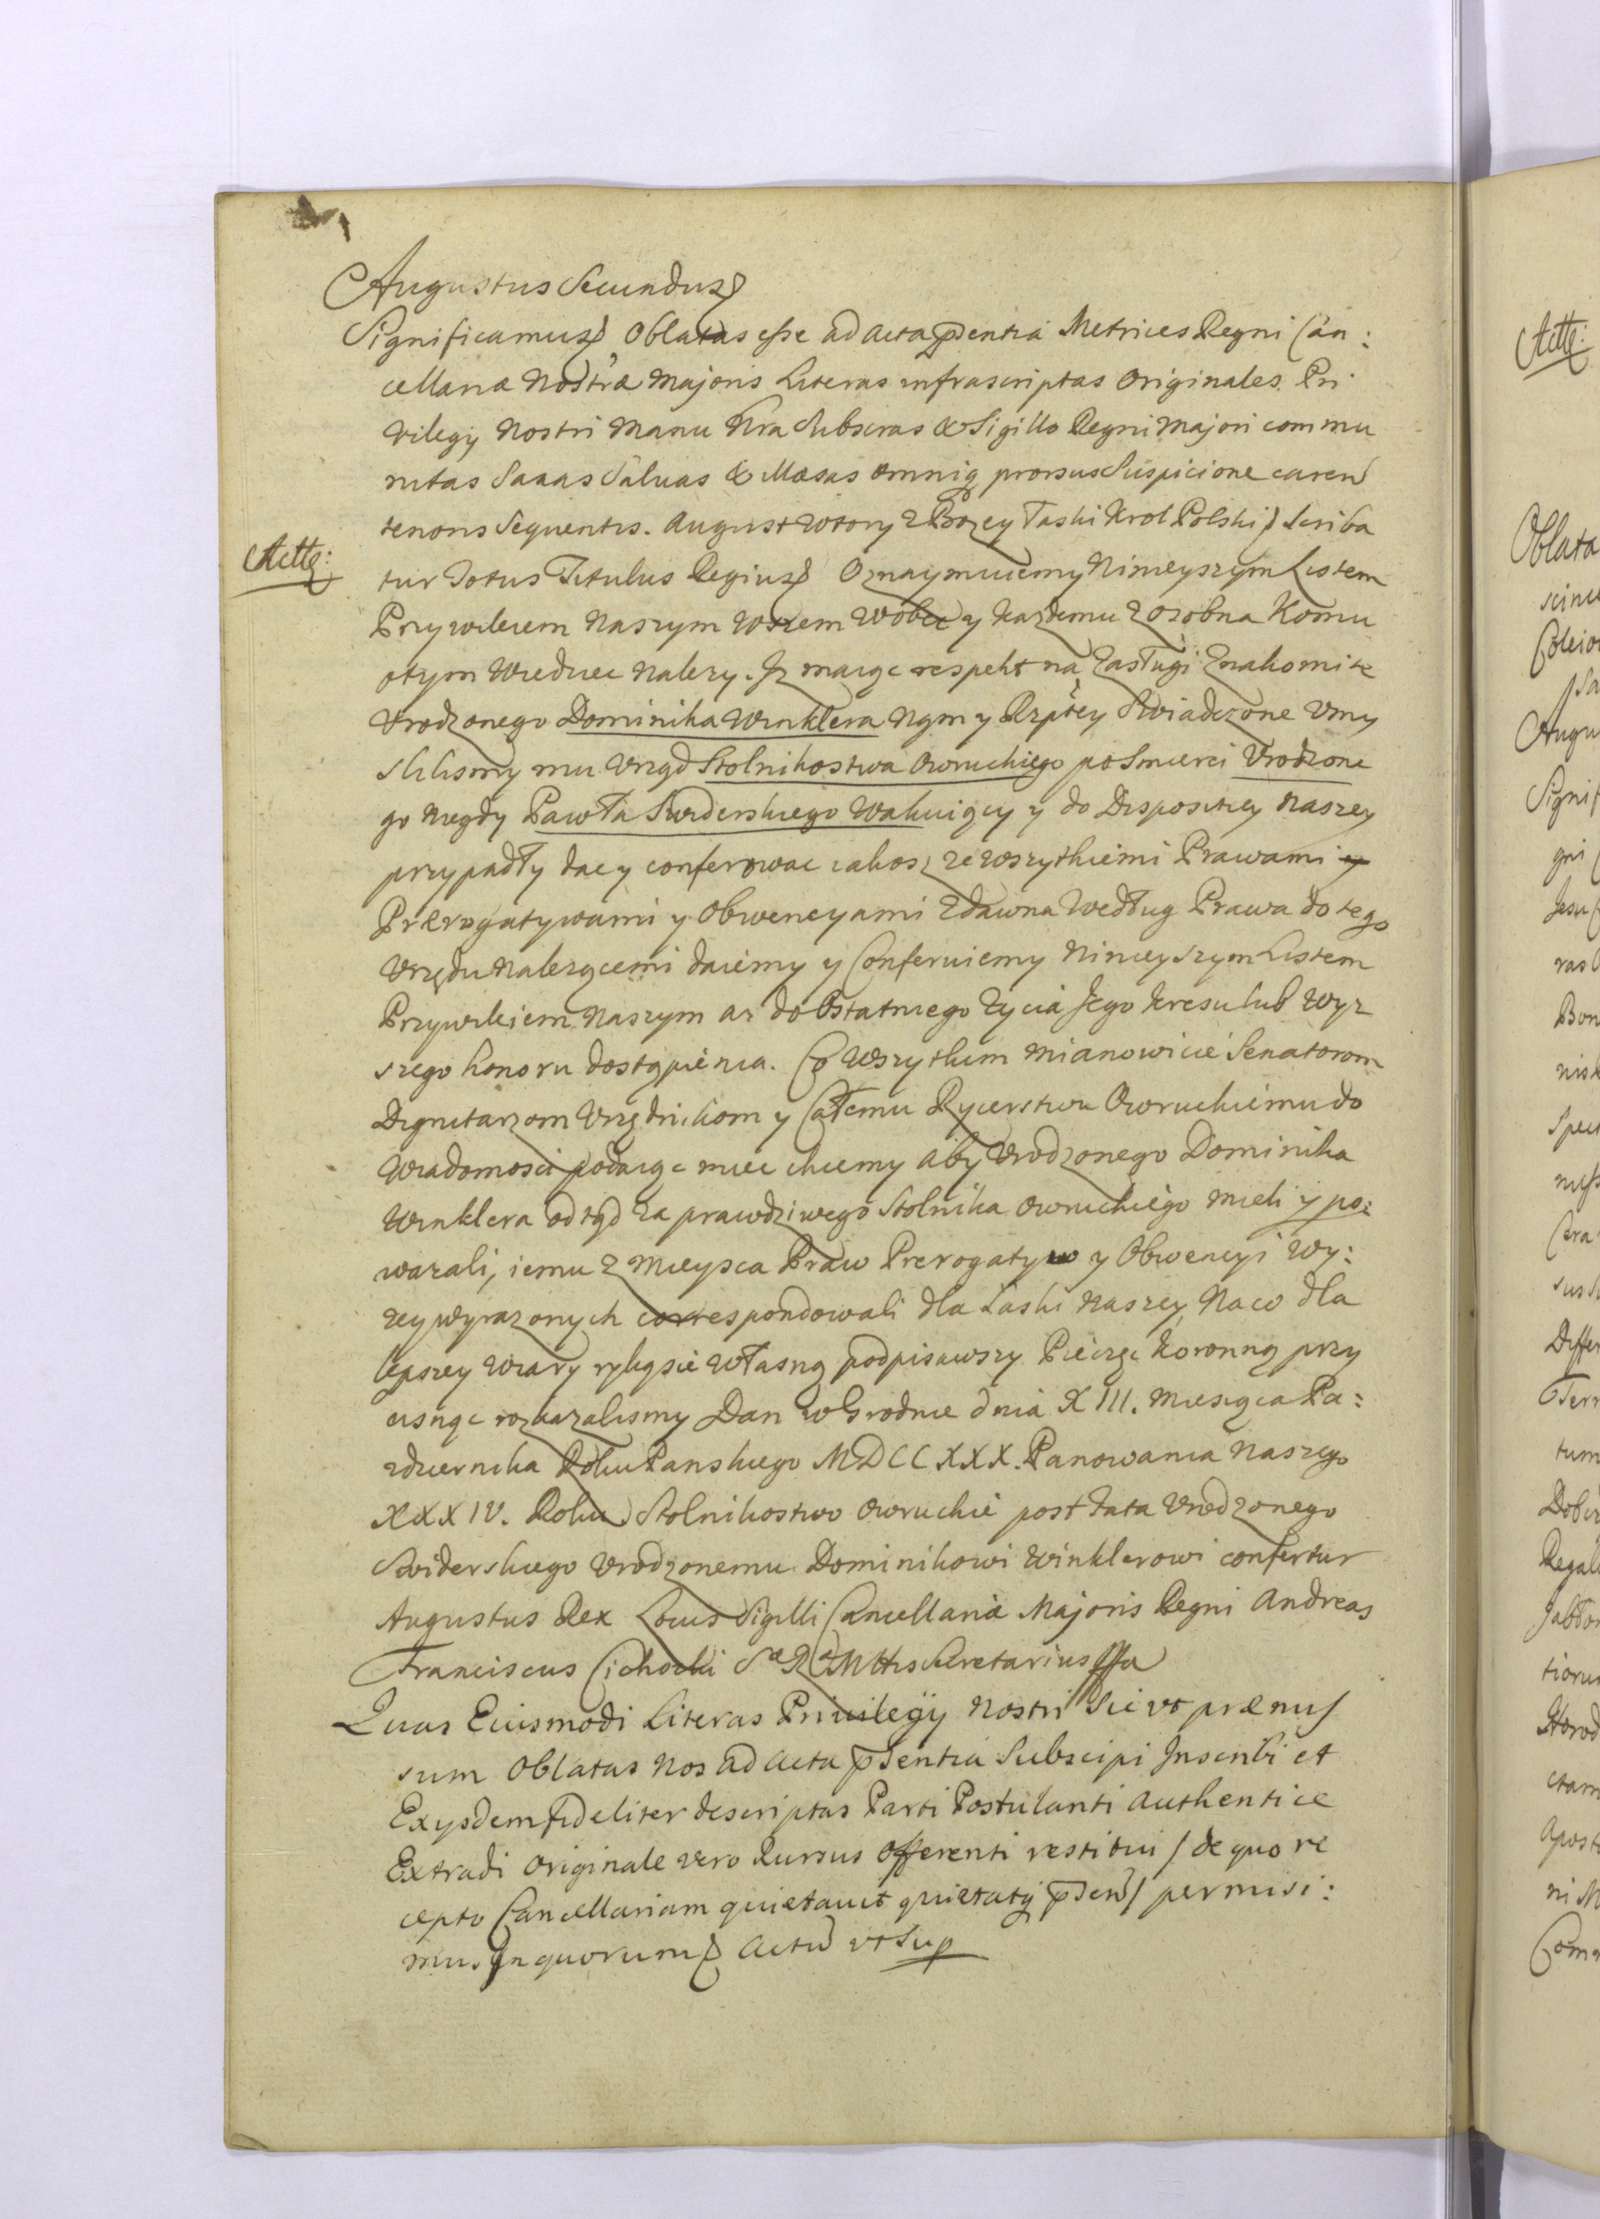 Augustus Secundus
Significamus Oblatas esse ad Acta pñtia Metrices Regni Can:
cellariæ Nostræ Majoris Literas infrascriptas Originales Pri
vilegÿ Nostri Manu Nra Subscras & Sigillo Regni Majori commu
nitas Sanas Salvas & Illæsas omniq prorsus Suspicione caren
tenoris Sequentis. August Wtory z Bozey Łaski Krol Polski Scriba
Actt:
tur Totus Titulus Regius Oznaymuiemy Ninieyszym Listem
Przywileiem Naszym Wszem Wobec y kazdemu zosobna Komu
otym Wiedziec nalezy. Iz maiąc respekt na Zasługi Znakomite
Urodzonego Dominika Winklera Nam y Rzptey Swiadczone Umy
slilismy mu Urząd Stolnikostwa Owruckiego po Smierci Urodzone
go Niegdy Pawła Swiderskiego Wakuiący y do Dispozitiey Naszey
przypadły dac y conferowac iakosz ze wszytkiemi Prawami y
Prærogatywami y Obwencyami zdawna Według Prawa do tego
Urzędu Nalezącemi daiemy y Conferuiemy Ninieyszym Listem
Przywileiem Naszym az do Ostatniego Zycia Jego kresu lub Wyz
szego honoru dostąpienia. Co Wszytkim mianowicie Senatorom
Dignitarzom Urzędnikom y Całemu Rycerstwu Owruckiemu do
Wiadomosci podaiąc miec chcemy aby Urodzonego Dominika
Winklera odtąd za prawdziwego Stolnika Owruckiego mieli y po:
wazali, iemu z Mieysca Praw Prerogatyw y Obwencyi Wy:
zey wyrazonych correspondowali dla Łaski Naszey, Na co dla
lepszey Wiary ręką się Własną podpisawszy Pieczęc koronną przy
cisnąc rozkazalismy Dan w Grodnie dnia XIII. Miesiąca Pa:
zdziernika Roku Panskiego MDCCXXX. Panowania Naszego
XXXIV. Roku Stolnikostwo Owruckie post Fata Urodzonego
Swiderskiego Urodzonemu Dominikowi Winklerowi confertur
Augustus Rex Locus Sigilli Cancellariæ Majoris Regni Andreas
Franciscus Cichocki S R Mttis Secretarius
Quas Eiusmodi Literas Privilegÿ Nostri Sic ut præmis
sum Oblatas Nos ad Acta pñtia Suscipi Inscribi et
Exÿsdem fideliter descriptas Parti Postulanti Authentice
Extradi Originale vero Rursus Offerenti restitui / de quo re
cepto Cancellariam quietavit quietatq pñ / permisi:
mus In quorum Actu ut Sup